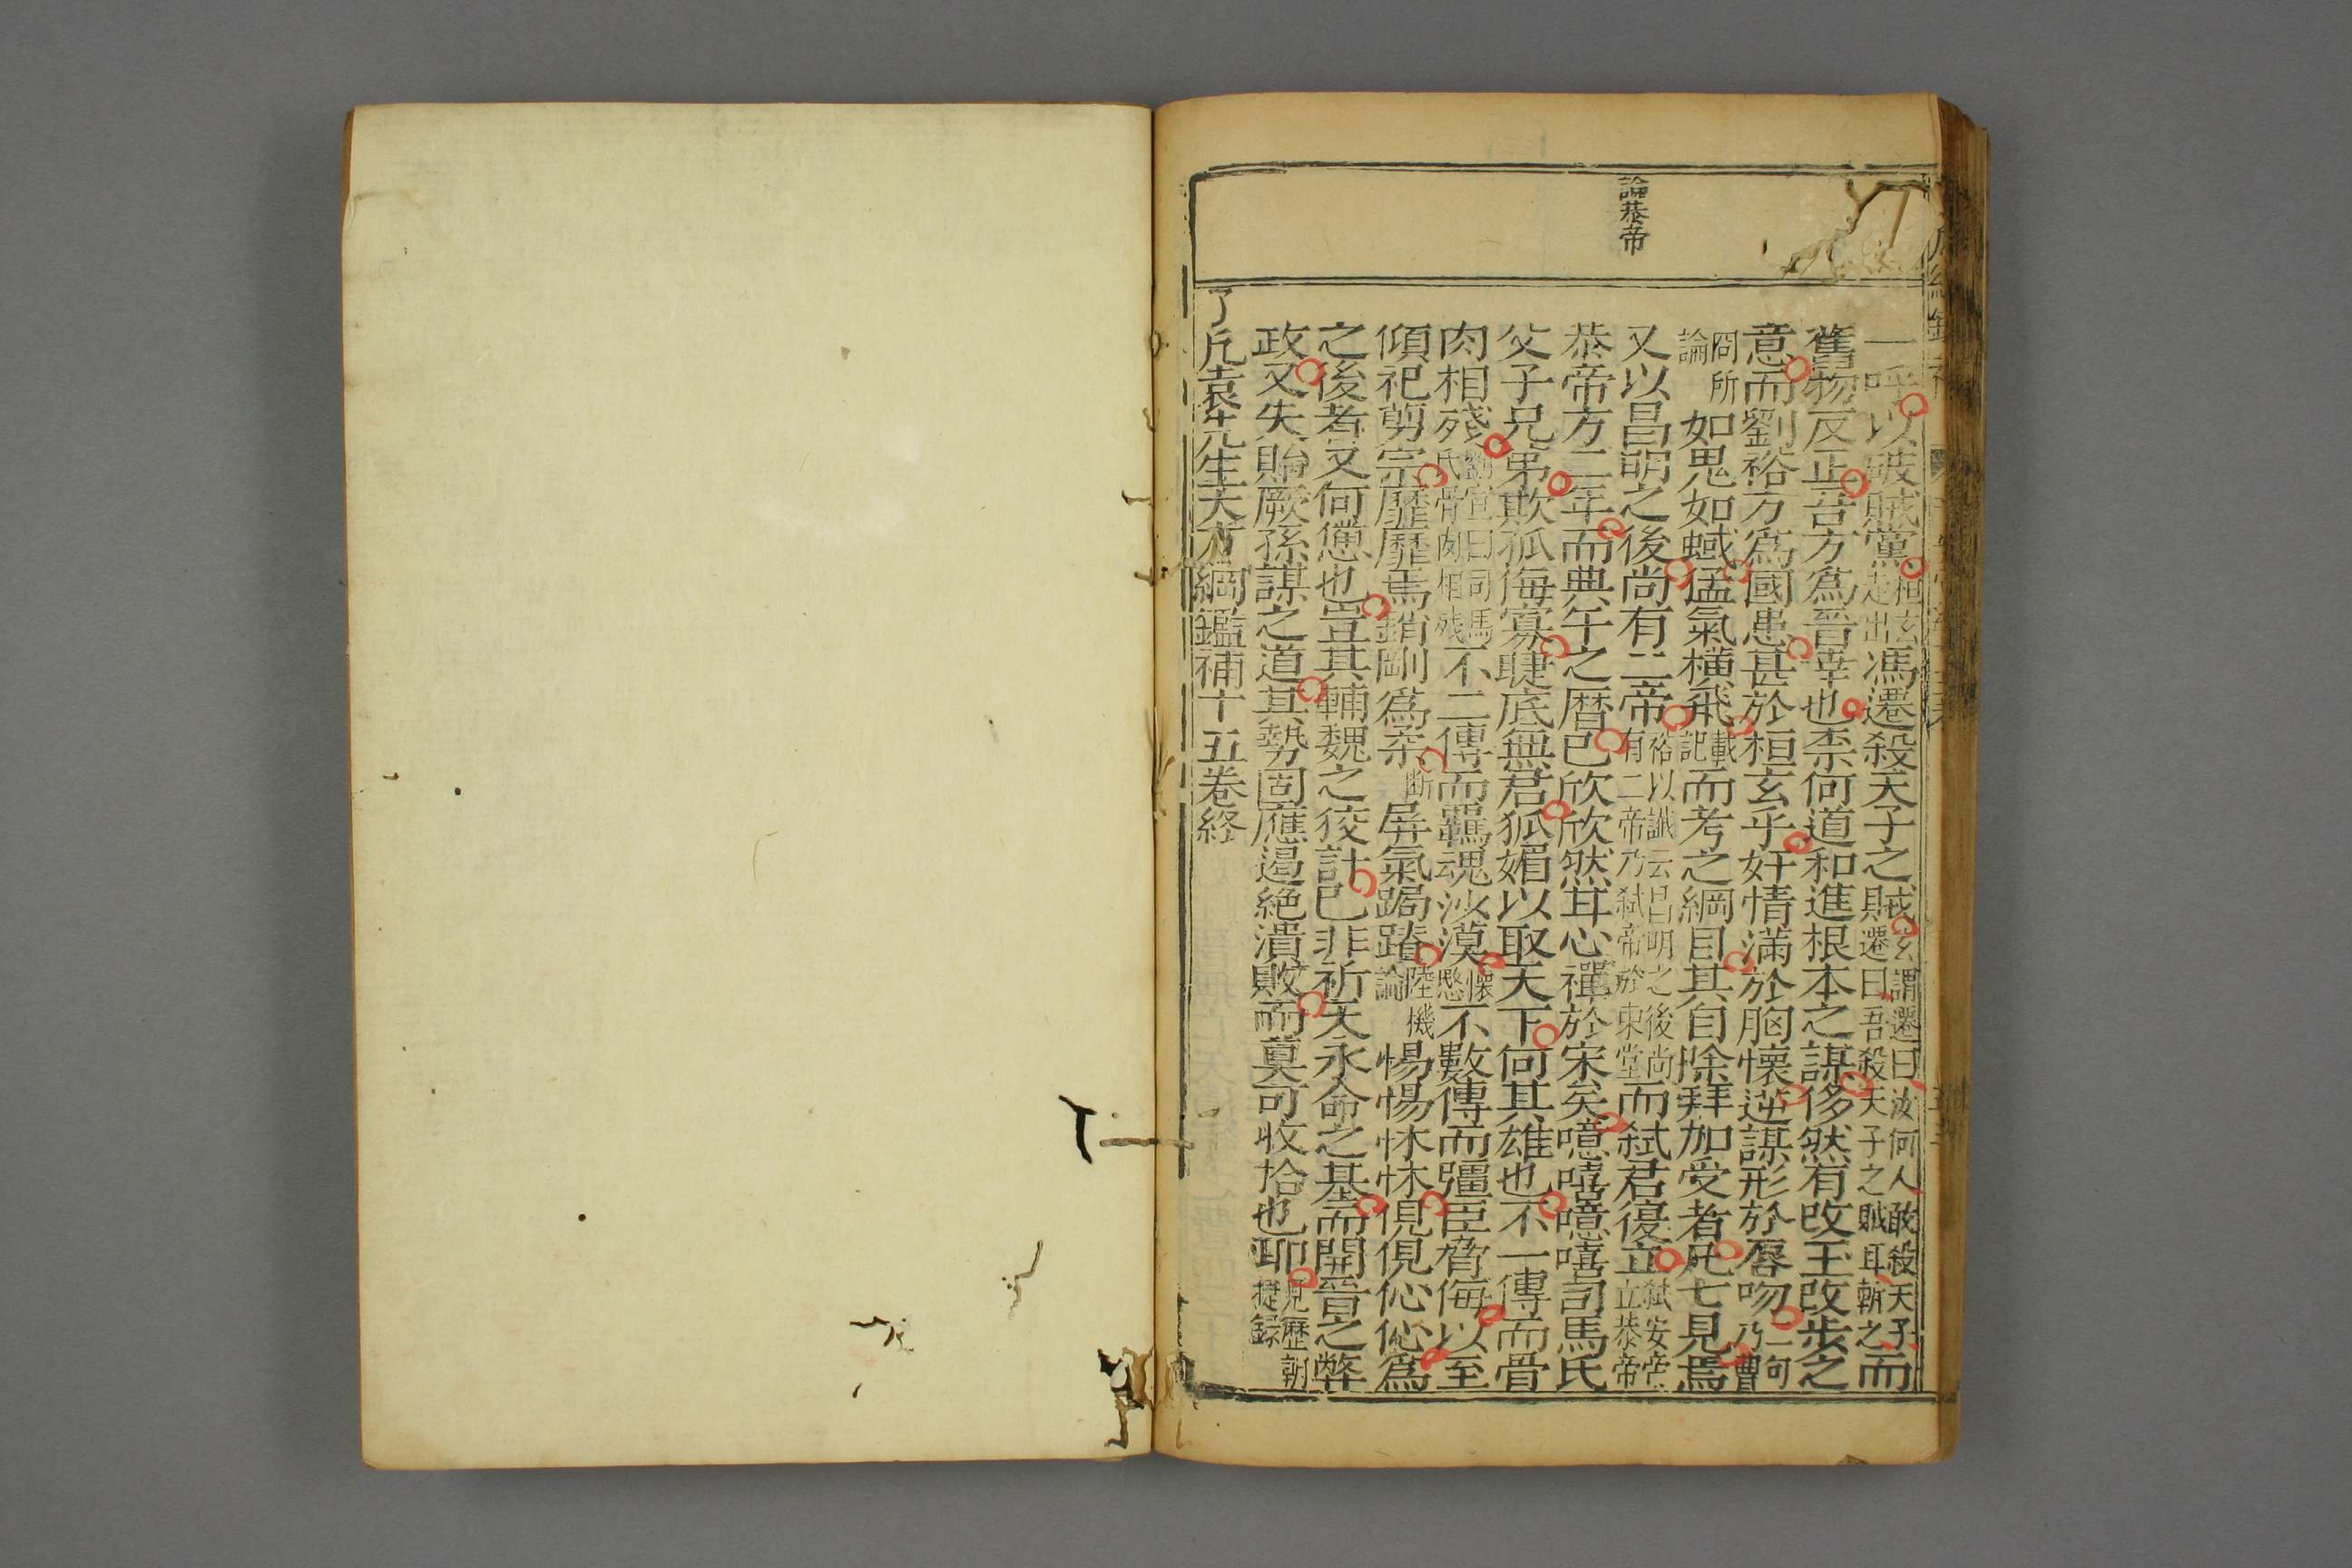 論恭帝
一呼以破賊黨桓玄走出馮遷殺天子之賊玄謂遷曰汝何人敢殺天子遷曰吾殺天子之賊耳斬之而
舊物反正吾方為晉幸也柰何道和進根本之謀侈然有改王改步之
意而劉裕方為國患甚於桓玄乎奸情滿於胸懷逆謀形於唇吻一句乃曹
冏所論如鬼如蜮猛氣橫飛載記而考之綱目其自除拜加受者凡七見焉
又以昌明之後尚有二帝裕以讖云昌明之後尚有二帝乃弒帝於東堂而弒君復立弒安帝立恭帝
恭帝方二年而典午之曆已欣欣然甘心禪於宋矣噫嘻噫嘻司馬氏
父子兄弟欺孤侮寡睫底無君狐媚以取天下何其雄也不一傳而骨
肉相殘劉宣曰司馬氏骨肉相殘不二傳而羈魂沙漠懷愍不數傳而彊臣脅侮以至
傾祀剪宗歷歷焉銷剛為柔斷屏氣跼蹐陸機論惕惕怵怵俔俔伈伈為
之後者又何憊也豈其輔魏之狡計已非祈天永命之基而開晉之弊
政又失貽厥孫謀之道其勢固應遏絕潰敗而莫可收拾也耶見歷朝捷錄
了凡袁先生大方綱鑑補十五卷終